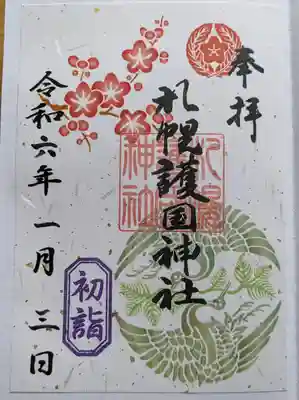 奉拝
札幌護国神社
札幌護国神社
令和六年一月三日
初詣